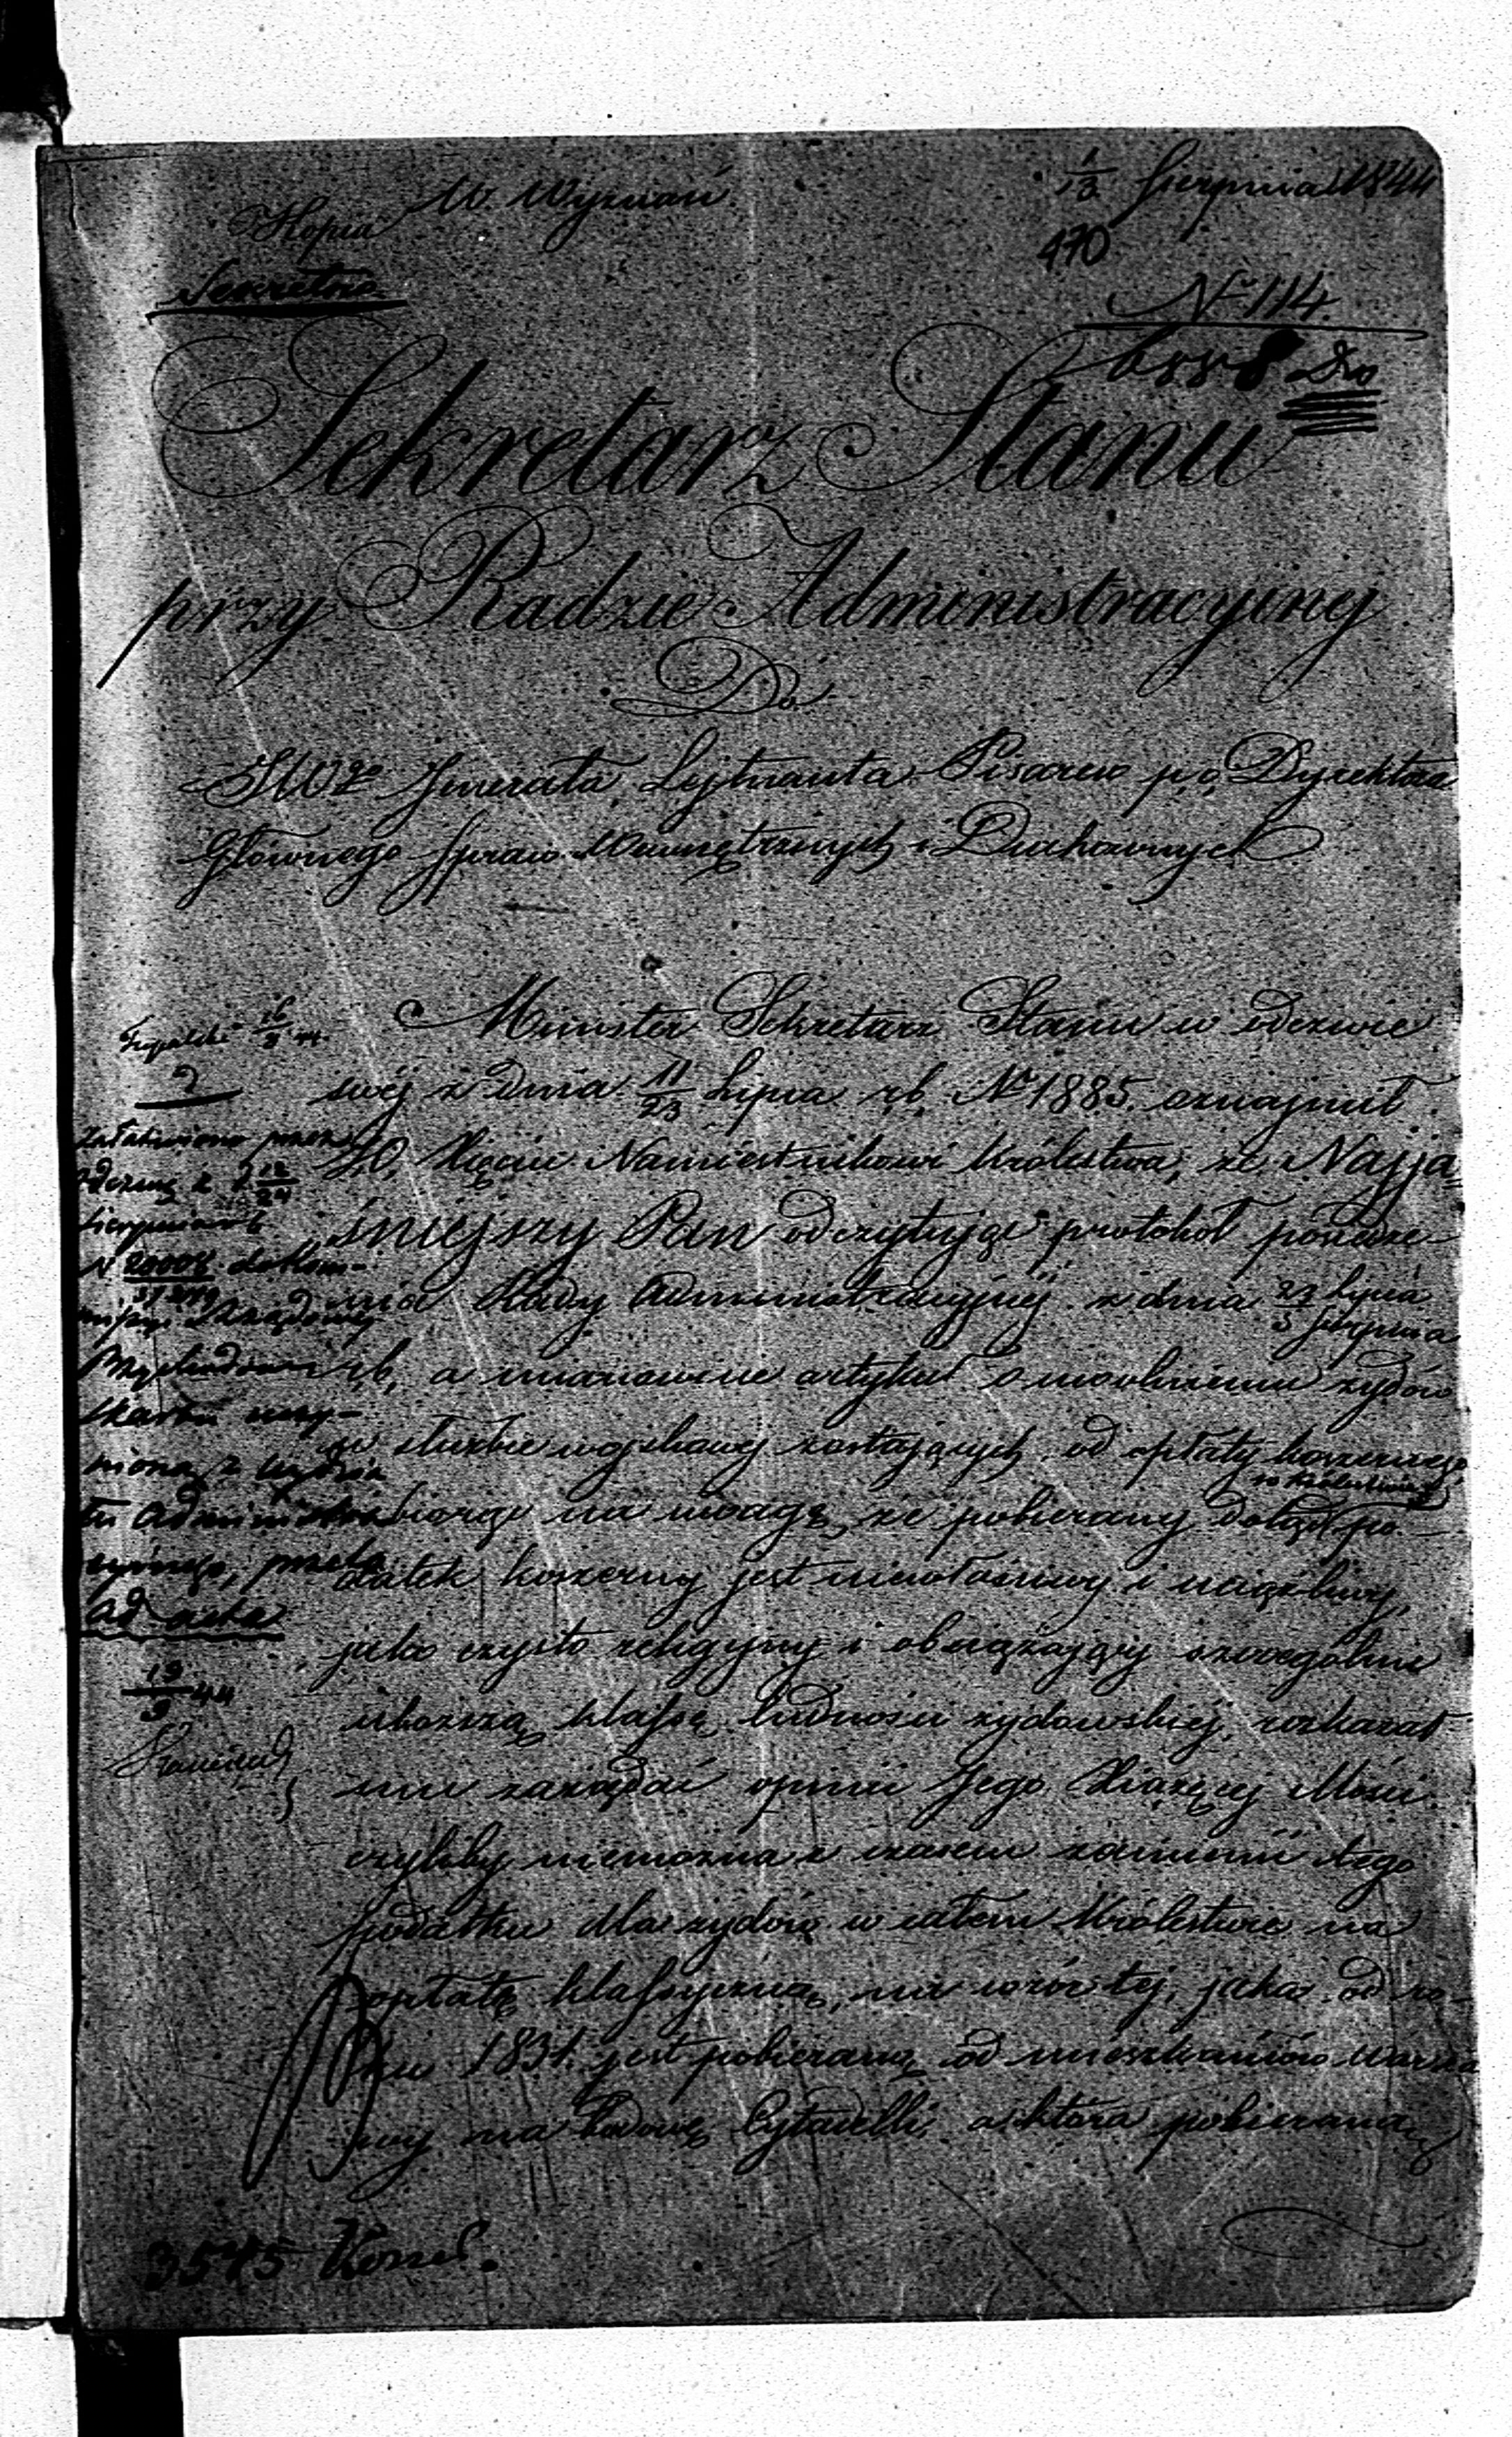 W. Wyznań
1/13 Sierpnia 1844
Kopia
170
Sekretno
No 114.
Sekretarz Stanu
przy Radzie Administracyjnej
Do
JWgo Jenerała Lejtnanta Pisarew p.o. Dyrektora
Głównego Spraw Wewnętrznych i Duchownych
Minister Sekretarz Stanu w odezwie
swej z dnia 11/23 Lipca r.b. No 1885. oznajmił
J.O. Xięciu Namiestnikowi Królestwa, że Najja
śniejszy Pan odczytując protokół posiedze-
nia Rady Administracyjnej z dnia 23 Lipca / 5 Sierpnia
r.b. a mianowicie artykuł o uwolnieniu żydów
w służbie wojskowej zostających od opłaty koszernego
w Królestwie
biorąc na uwagę, że pobierany dotąd po-
datek koszerny jest niewłaściwy i uciążliwy,
jako czysto religijny i obciążający szczególnie
uboższą klassę ludności żydowskiej, rozkazał
mu zażądać opinii Jego Xiążęcej Mości
czyliby niemożna z czasem zamienić tego
podatku dla żydów w całem Królestwie na
opłatę klassyczną, na wzór tej, jaka od ro-
ku 1831. jest pobieraną od mieszkańców Warsza
wy na budowę Cytadelli, a która pobieraną
16/8 44.
Załatwiono przez
odezwę z d 12/24
Sierpnia r b
N 20008 do Kom-
missyi Rządowej
Przychodów i
Skarbu uczy-
nioną z Wydzia
łu Administra
cyjnego, przeto
ad acta
19/9 44
3545 Kons.